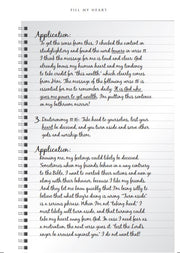 FILL MY HEART
Application:
To get the sense from this, I checked the context on
studylight.org and found the word favors in verse 17.
I think the message for me is loud and clear. God
already knows my human heart and my tendency
to take credit for "this wealth," which clearly comes
from Him. The message of the following verse 18 is
essential for me to remember daily. It is God who
gives me power to get wealth. I'm putting this sentence
on my bathroom mirror!
3. Deuteronomy 11:16: Take heed to yourselves, lest your
heart be deceived, and you turn aside and serve other
gods and worship them.
Application:
Knowing me, my feelings could likely be deceived.
Sometimes when my friends behave in a way contrary
to the Bible, I want to overlook their actions and even go
along with their behavior, because I like my friends.
And they let me know quickly that I'm being silly to
believe that what they're doing is wrong. "Turn aside"
is a serious phrase. When I'm not "taking heed," I
most likely will turn aside, and that turning could
take my heart away from God. In case I need fear as
a motivation, the next verse says it: "lest the Lord's
anger be aroused against you." I do not want that!